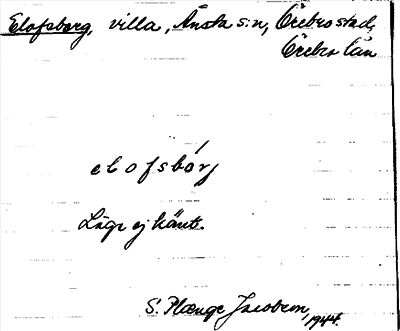 Elofsberg, villa, Ånsta s:n, Örebro stad,
Örebro län
elofsbórj
Läge ej känt.
S. Plænge Jacobson, 1944.